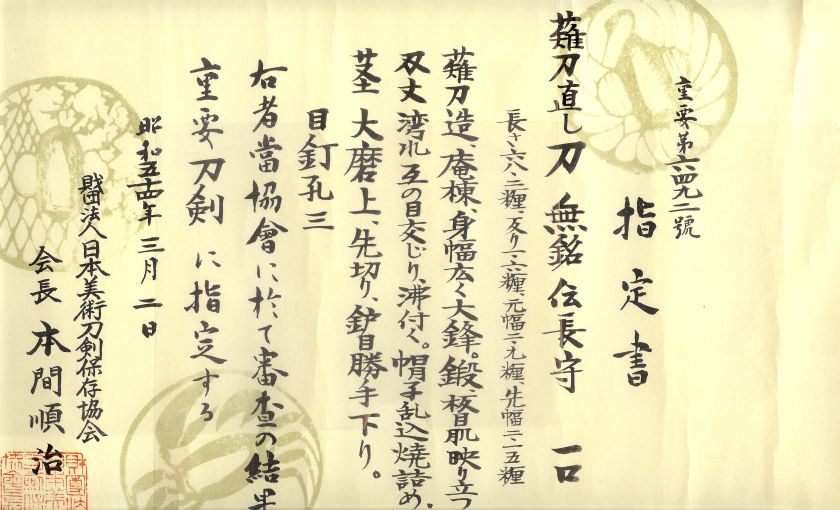 重要第六四九二號
指定書
薙刀直し刀 無銘伝長守 一口
長さ六八・二糎、反り一・六糎、元幅二・九糎、先幅二・二五糎
薙刀造、庵棟、身幅広く大鋒。鍛、板目肌映り立つ
刃文 湾れ互の目交じり、沸付く。帽子乱込焼詰め。
茎 大磨上、先切り、鑢目勝手下り。
目釘孔三
右者當協會に於て審査の結果
重要刀剣に指定する
昭和五十四年三月二日
財団法人日本美術刀剣保存協会
会長 本間順治